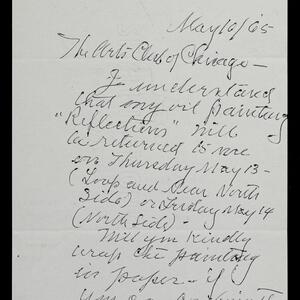 May 10/65
The Arts Club of Chicago —
I understand
that my oil painting
"Reflections" will
be returned to me
on Thursday May 13 —
(Loop and Near North
Side) or Friday May 14
(North Side) —
Will you kindly
wrap the painting
in paper — if